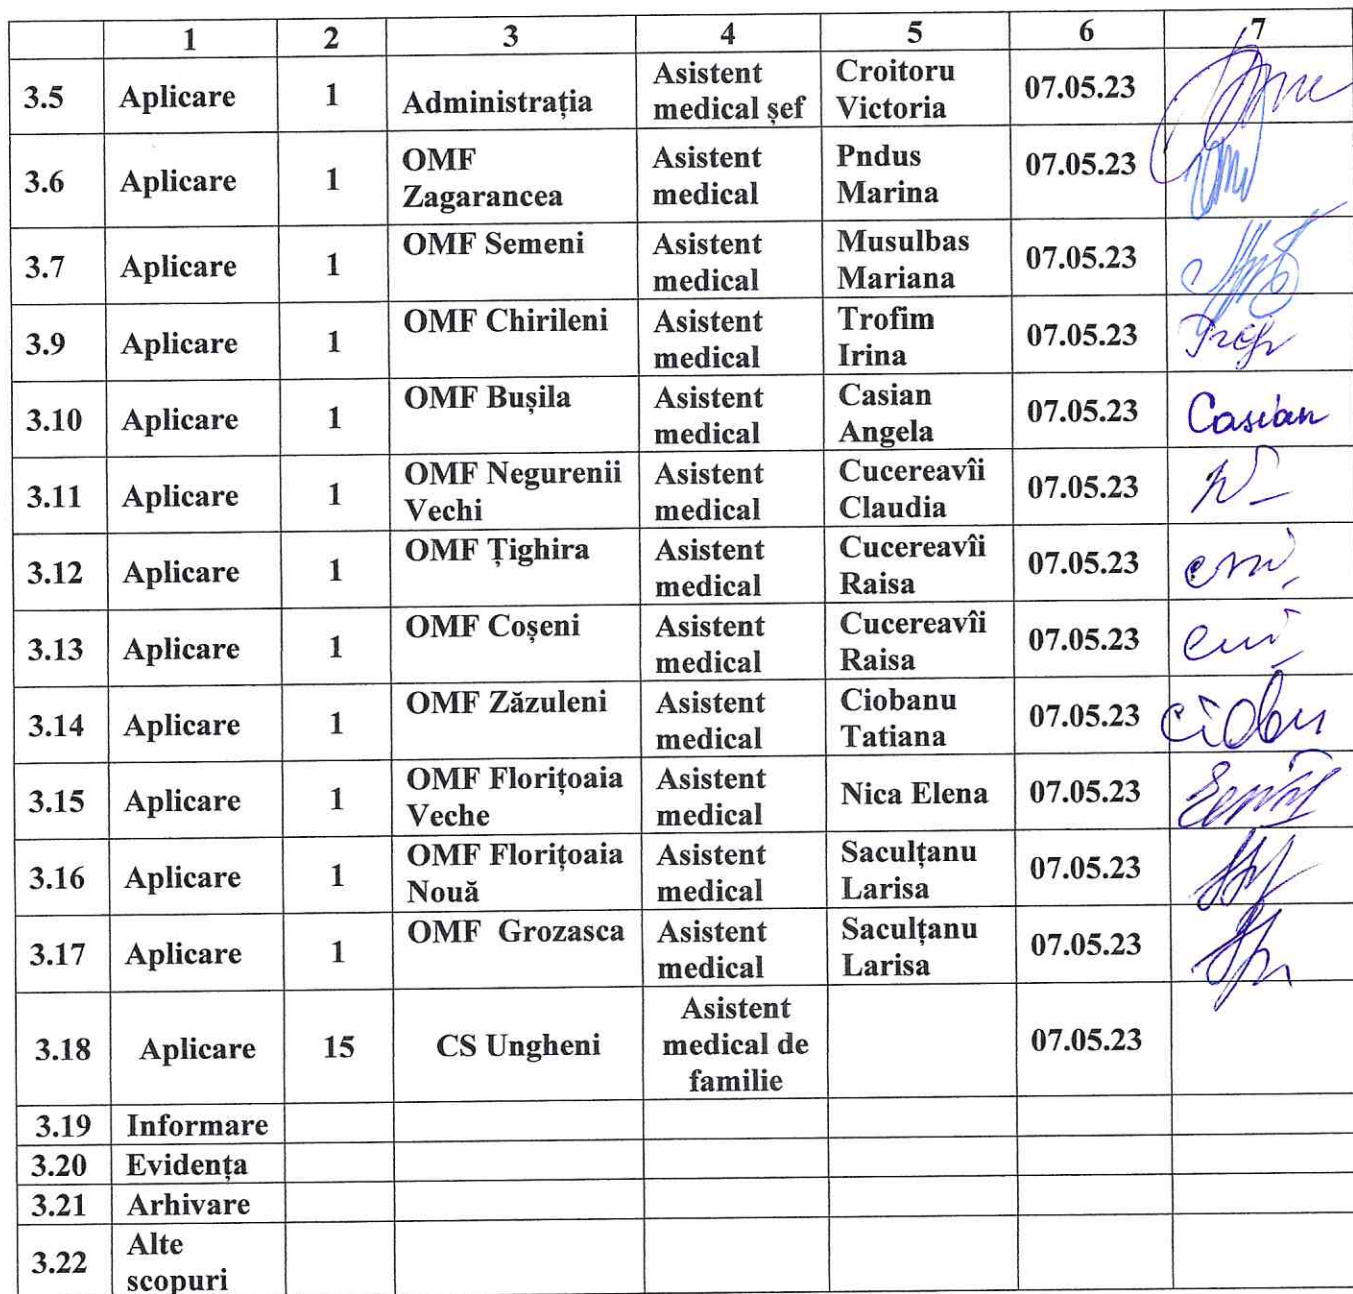 1 2 3 4 5 6 7
3.5 Aplicare 1 Administrația Asistent medical șef Croitoru Victoria 07.05.23
3.6 Aplicare 1 OMF Zagarancea Asistent medical Pndus Marina 07.05.23
3.7 Aplicare 1 OMF Semeni Asistent medical Musulbas Mariana 07.05.23
3.9 Aplicare 1 OMF Chirileni Asistent medical Trofim Irina 07.05.23
3.10 Aplicare 1 OMF Bușila Asistent medical Casian Angela 07.05.23 Casian
3.11 Aplicare 1 OMF Negurenii Vechi Asistent medical Cucereavîi Claudia 07.05.23
3.12 Aplicare 1 OMF Țighira Asistent medical Cucereavîi Raisa 07.05.23
3.13 Aplicare 1 OMF Coșeni Asistent medical Cucereavîi Raisa 07.05.23
3.14 Aplicare 1 OMF Zăzuleni Asistent medical Ciobanu Tatiana 07.05.23
3.15 Aplicare 1 OMF Florițoaia Veche Asistent medical Nica Elena 07.05.23
3.16 Aplicare 1 OMF Florițoaia Nouă Asistent medical Saculțanu Larisa 07.05.23
3.17 Aplicare 1 OMF Grozasca Asistent medical Saculțanu Larisa 07.05.23
3.18 Aplicare 15 CS Ungheni Asistent medical de familie 07.05.23
3.19 Informare
3.20 Evidența
3.21 Arhivare
3.22 Alte scopuri